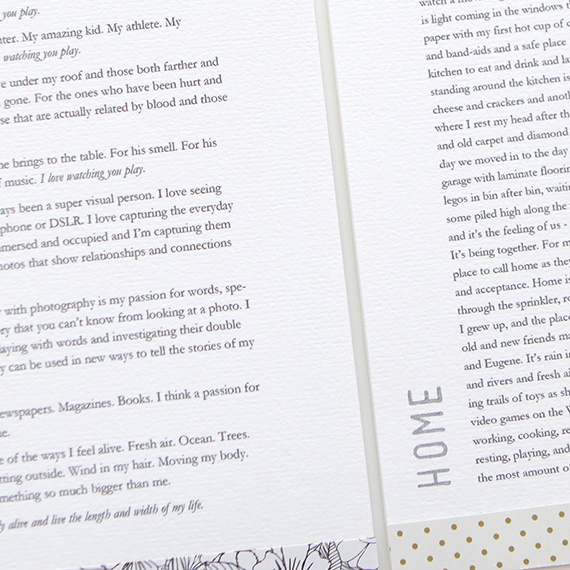 you play.
My amazing kid. My athlete. My
watching you play.
under my roof and those both farther and
gone. For the ones who have been hurt and
that are actually related by blood and those
brings to the table. For his smell. For his
music. I love watching you play.
been a super visual person. I love seeing
phone or DSLR. I love capturing the everyday
and occupied and I'm capturing them
that show relationships and connections
with photography is my passion for words, spe-
that you can't know from looking at a photo. I
with words and investigating their double
can be used in new ways to tell the stories of my
Magazines. Books. I think a passion for
of the ways I feel alive. Fresh air. Ocean. Trees.
outside. Wind in my hair. Moving my body.
so much bigger than me.
alive and live the length and width of my life.
HOME
is light coming in the windows
paper with my first hot cup of
and band-aids and a safe place
kitchen to eat and drink and
standing around the kitchen is
cheese and crackers and
where I rest my head after
and old carpet and diamond
day we moved in to the day
garage with laminate
legos in bin after bin,
some piled high along the
and it's the feeling of us -
It's being together. For
place to call home as they
and acceptance. Home is
through the sprinkler,
I grew up, and the place
old and new friends
and Eugene. It's rain
and rivers and fresh
ing trails of toys as
video games on the
working, cooking,
resting, playing, and
the most amount